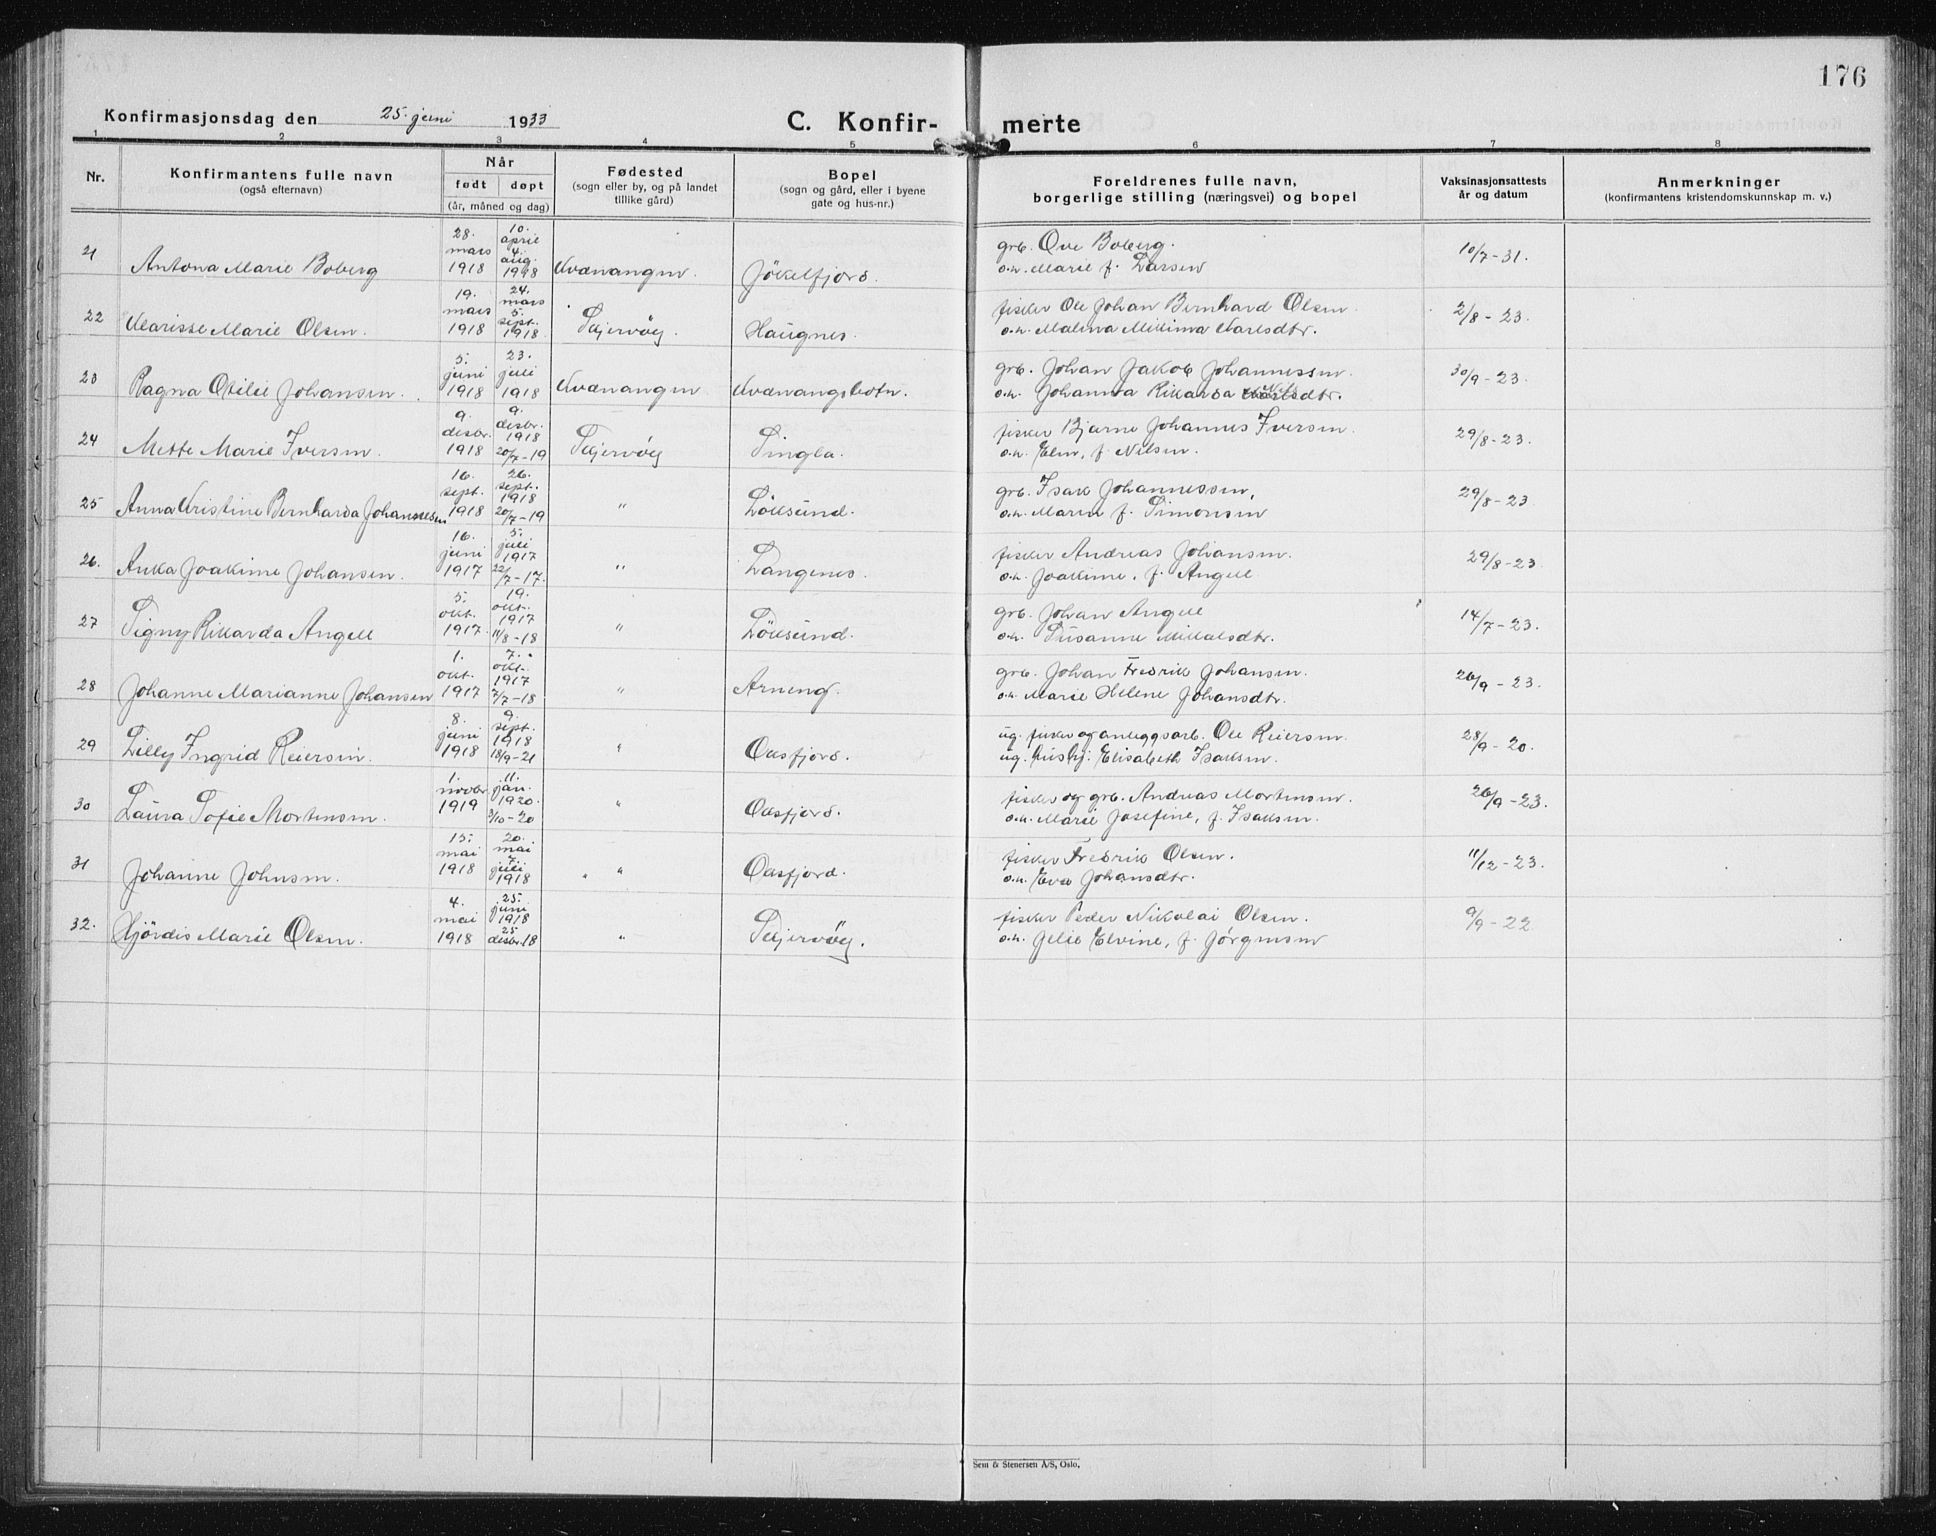 176
Konfirmasjonsdag den 25. juni 1933
C. Konfir- merte
1 2 3 4 5 6 7 8
Nr.
Konfirmantens fulle navn
(også efternavn)
Når
født døpt
(år, måned og dag)
Fødested
(sogn eller by, og på landet
tillike gård)
Bopel
(sogn og gård, eller i byene
gate og hus-nr.)
Foreldrenes fulle navn,
borgerlige stilling (næringsvei) og bopel
Vaksinasjonsattests
år og datum
Anmerkninger
(konfirmantens kristendomskunnskap m. v.)
21 Antona Marie Boberg
28. mars 1918
10. april 4. aug. 1918
Kvænangen Jökelfjord.
grb. Ove Boberg.
o.h. Marie f. Larsen
10/7-31.
22 Klarisse Marie Olsen.
19. mars 1918
24. mars 5. sept. 1918
Skjervöy. Haugnes.
fisker Ole Johan Bernhard Olsen
o.h. Malena Mikkima Karlsdtr.
2/8-23.
23 Ragna Otilie Johansen.
5. juni 1918
23. juli 1918
Kvænangen Kvænangsbotn.
grb. Johan Jakob Johannessen.
o.h. Johanna Rikarda Nilsdtr.
30/9-23.
24 Mette Marie Iversen.
9. desbr. 1918
9. desbr. 1918 20/7-19
Skjervöy Singla.
fisker Bjarne Johannes Iversen.
o.h. Elen, f. Nilsen.
29/8-23.
25 Anna Kristine Bernharda Johannesen
16. sept. 1918
26. sept. 1918 20/7-19
" Lökesund.
grb. Isak Johannessen,
o.h. Maren f. Simonsen
29/8-23
26. Anka Joakime Johansen.
16. juni 1917
5. juli 1917 22/7-17.
" Langenes.
fisker Andreas Johansen.
o.h. Joakime, f. Angell
29/8-23.
27 Signy Rikkarda Angell
5. okt. 1917.
19. okt. 1917 11/8-18
" Lökesund.
grb. Johan Angell
o.h. Susanne Mikkalsdtr.
14/7-23.
28 Johanne Marianne Johansen
1. okt. 1917
7. okt. 1917 7/7-18
" Arneng.
grb. Johan Fredrik Johansen.
o.h. Marie Helene Johansdtr.
26/9-23.
29 Lilly Ingrid Reiersen.
8. juni 1918
9. sept. 1918 18/9-21
" Oksfjord.
ug. fisker og anleggsarb. Ole Reiersen
ug. hushj: Elisabeth Isaksen.
28/9-20.
30 Laura Sofie Mortensen.
1. novbr. 1919
11. jan. 1920. 3/10-20
" Oksfjord.
fisker og grb. Andreas Mortensen.
o.h. Marie Josefine, f. Isaksen.
26/9-23.
31 Johanne Johnsen.
15. mai 1918
20. mai 7. juli 1918
" " Oksfjord.
fisker Fredrik Olsen.
o.h. Eva Johansdtr.
11/12-23.
32. Hjördis Marie Olsen.
4. mai 1918
25. juni 1918 25 desbr. 18
" Skjervöy.
fisker Peder Nikolai Olsen.
o.h. Jelie Elvine, f. Jörgensen
9/9-22
Sem & Stenersen A/S, Oslo.